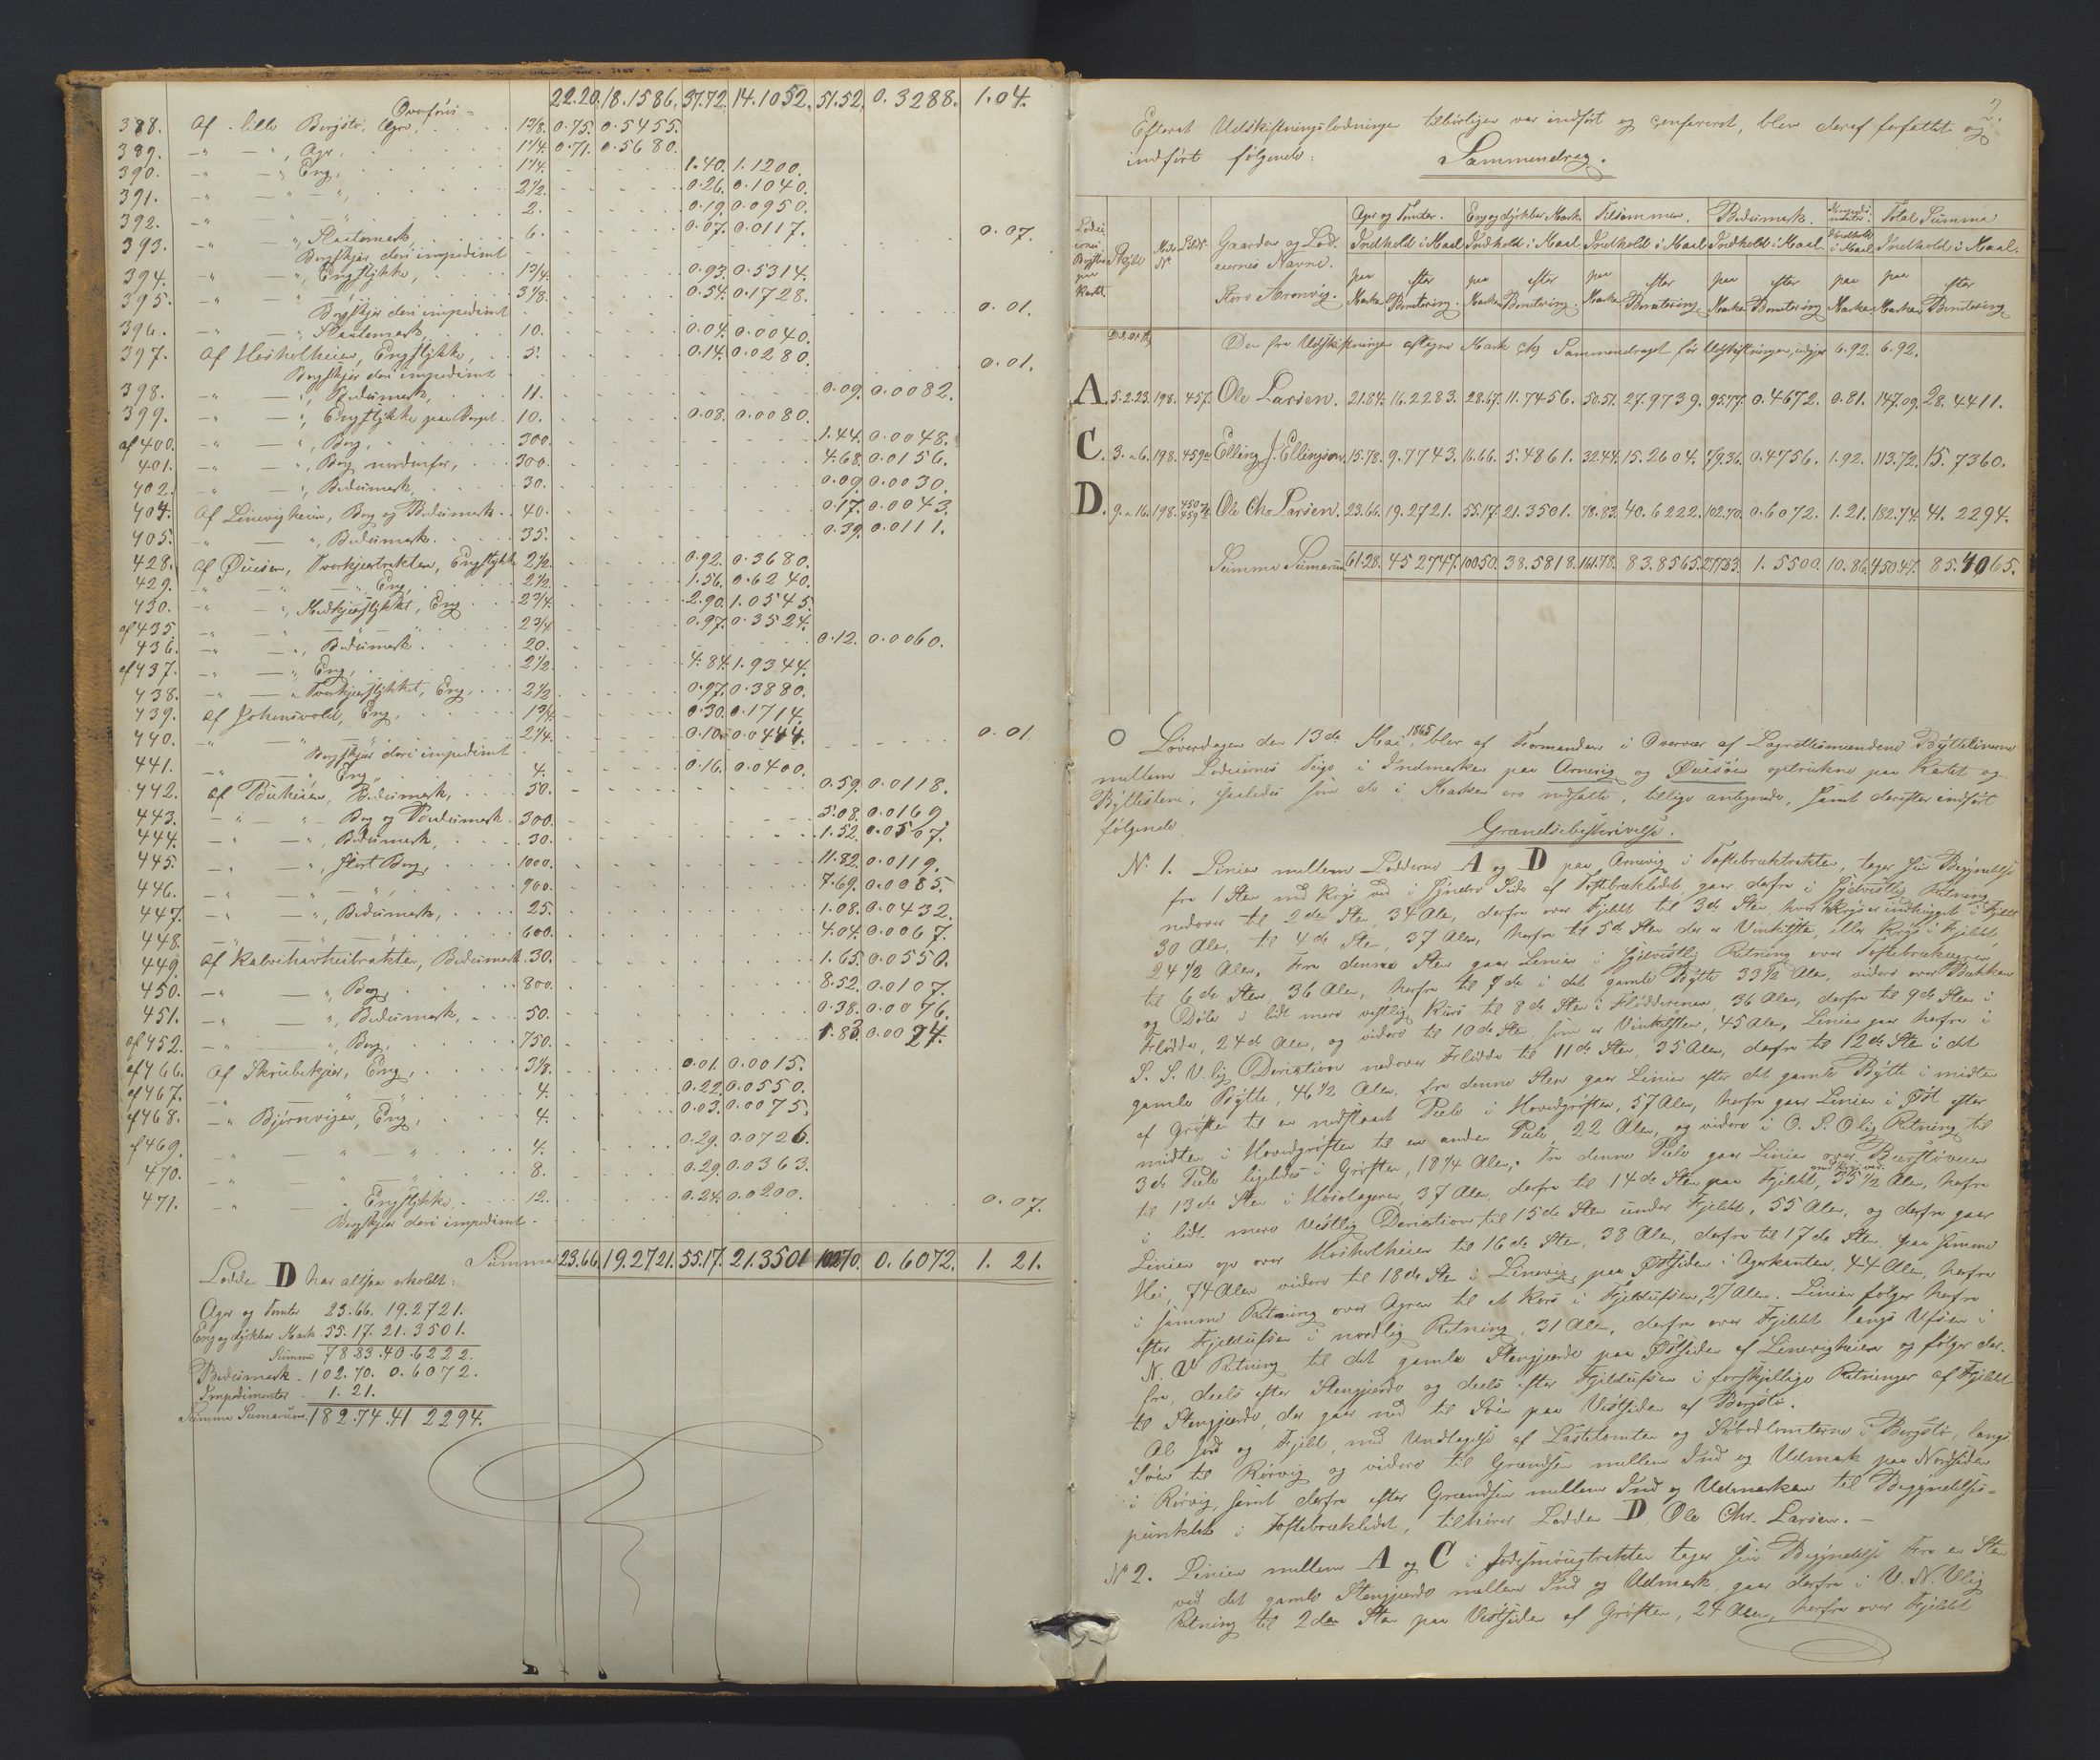 Overføres = 22.20. 18.1586. 37.72. 14.1052. 51.52. 0.3288. 1.04.
388. Af lille Bergstø, Ager, 1 3/8. 0.75. 0.5455.
389. —„ —„, Ager, 1 1/4. 0.71. 0.5680.
390. —„ —„ Eng, 1 1/4. 1.40. 1.1200.
391. —„ —„ —„ 2 1/2. 0.26. 0.1040.
392. —„ —„ —„ 2. 0.19. 0.0950.
393. —„ —„ Slaatemark 6. 0.07. 0.0117.
Bergskjær deri impediment 0.07.
394. —„ —„, Engstykke, 1 3/4. 0.93. 0.5314.
395. —„ —„ 3 1/8. 0.54. 0.1728.
Bergskjær deri impedimt 0.01.
396. —„ —„ Slaatemark, 10. 0.04. 0.0040.
397. Af Hosholheien, Engstykke, 5. 0.14. 0.0280.
Bergskjær deri impedimt 0.01.
398. —„ —„, Beduimark, 11. 0.09. 0.0082.
399. —„ —„, Engstykke paa Berget. 10. 0.08. 0.0080.
af 400. —„ —„, Berg, 300. 1.44. 0.0048.
401. —„ —„, Berg nordenfor, 300. 4.68. 0.0156.
402. —„ —„, Beduimark, 30. 0.09. 0.0030.
404. Af Linevigheien, Berg og Beduimark. 40. 0.17. 0.0043.
405. —„ —„, Beduimark. 35. 0.39. 0.0111.
428. Af Øuesøen, Tverkjertrakten, Engstykke 2 1/2. 0.92. 0.3680.
429. —„ —„ —„ Eng, 2 1/2. 1.56. 0.6240.
430. —„ —„, Medkjærstykket, Eng 2 3/4. 2.90. 1.0545.
af 435. —„ —„ —„ 2 3/4. 0.97. 0.3524.
436. —„ —„, Beduimark. 20. 0.12. 0.0060.
af 437. —„ —„ Eng, 2 1/2. 4.84. 1.9344.
438. —„ —„ Tverkjærstykket, Eng, 2 1/2. 0.97. 0.3880.
439. Af Johensvold, Eng, 1 3/4. 0.30. 0.1714.
440. —„ —„ —„ 2 1/4. 0.10. 0.0444.
Bergskjær deri impedimt 0.01
441. —„ —„ Eng 4. 0.16. 0.0400.
442. Af Buheien, Beduimark, 50. 0.59. 0.0118.
443. —„ —„ Berg og Beduimark. 300. 5.08. 0.0169.
444. —„ —„, Beduimark, 30. 1.52. 0.0507.
445. —„ —„, stort Berg, 1000. 11.82. 0.0119.
446. —„ —„ —„, 900. 7.69. 0.0085.
447. —„ —„, Beduimark, 25. 1.08. 0.0432.
448. —„ —„ —„ 600. 4.04. 0.0067.
449. Af Kalvehavheitrakten, Beduimark. 30. 1.65. 0.0550.
450. —„ —„, Berg, 800. 8.52. 0.0107.
451. —„ —„, Beduimark, 50. 0.38. 0.0076.
af 452. —„ —„, Berg, 750. 1.83. 0.0024.
af 466. Af Skrubekjær, Eng, 3 1/8. 0.01. 0.0015.
af 467. —„ —„ —„ 4. 0.22. 0.0550.
af 468. —„ Bjørnvigen, Eng, 4. 0.03. 0.0075.
af 469. —„ —„ —„ 4. 0.29. 0.0726.
470. —„ —„ —„ 8. 0.29. 0.0363.
471. —„ —„ Engstykke, 12. 0.24. 0.0200.
Bergskjær deri impedimt 0.07.
Summa 23.66. 19.2721. 55.17. 21.3501 102.70. 0.6072. 1. 21.
Lodden D har altsaa erholdt:
Ager og Tomter 23.66. 19.2721.
Eng og dyrkbar Mark. 55.17. 21.3501.
Summa 78.83. 40.6222.
Beduimark 102.70. 0.6072.
Impedimenter 1.21.
Summa Sumarum 182.74. 41 2294.
2.
Efterat Udskiftningslodningen tilbørligen var indført og confereret, blev deraf forfattet og
indført følgende:
Sammendrag.
Lodeiernes Bogstav paa Kartet. Skyld Matr. N° Løbe N° Gaardens og Lodeiernes Navne. Store Arenvig. Ager og Tomter. Eng og dyrkbar Mark. Tilsammen. Beduimark. Impedimenter. Total Summa
Indhold i Maal Indhold i Maal. Indhold i Maal Indhold i Maal. Indhold i Maal Indhold i Maal.
paa Marken efter Bonitering. paa Marken efter Bonitering. paa Marken efter Bonitering. paa Marken efter Bonitering paa Marken paa Marken efter Bonitering.
Den fra Udskiftningen aftagne Mark cfr Sammendraget før Udskiftningen, udgjør 6.92. 6.92.
A 5.2.23. 198. 457. Ole Larsen. 21.84. 16.2283. 28.67. 11.7456. 50.51. 27.9739. 95.77. 0.4672. 0.81. 147.09. 28. 4411.
C. 3. „ 6. 198. 459a Elling J. Ellingsen 15.78. 9.7743. 16.66. 5.4861. 32.44. 15.2604. 79.36. 0.4756. 1.92. 113.72. 15. 7360.
D. 9. „ 16. 198. Ole Chr. Larsen. 23.66. 19.2721. 55.17. 21.3501. 78.83. 40.6222. 102.70. 0.6072. 1.21. 182.74. 41. 2294.
Summa Sumarum 61.28. 45 2747. 100.50. 38.5818. 161.78. 83.8565. 277.83. 1. 5500. 10.86. 450.47. 85.4065.
Løverdagen den 13de Mai 1865, blev af Formanden i Overvær af Lagrettesmændene Byttelinierne
mellem Lodeiernes Teige i Indmarken paa Arnevig og Øuesøen optrukne paa Kartet og
Byttestene, saaledes som de i Marken ere nedsatte, tillige antegnede, samt derefter indført
følgende
Grændsebeskrivelse.
N° 1. Linien mellem Lodderne A og D paa Arnevig i Toftebræktrakten, tager sin Begyndelse
fra 1 Sten med Kryds ved i søndre Side af Toftebrækledet, gaar derfra i sydvestlig Retning
nedover til 2den Sten, 34 Alen, derfra over Fjeldet til 3de Sten, hvor Kryds er indhugget i Fjeldet
30 Alen, til 4de Sten, 37 Alen, herfra til 5te Sten der er Vinkelsten, eller Kryds i Fjeldet,
24 1/2 Alen. Fra denne Sten gaar Linien i sydvestlig Retning over Toftebrækageren
til 6de Sten 36 Alen, herfra til 7de i det gamle Bytte 33 1/2 Alen, videre over Bækken
og Døla i lidt mere vestlig Kurs til 8de Sten i Flødderenen, 36 Alen, derfra til 9de Sten i
Flødde, 24de Alen, og videre til 10de Sten som er Vinkelsten, 45 Alen, Linien gaar herfra i
S. S. V.lig Deriation nedover Flødde til 11de Sten, 35 Alen, derfra til 12de Sten i det
gamle Bytte, 46 1/2 Alen, fra denne Sten gaar Linien efter det gamle Bytte i midten
af Grøften til en nedslaaet Pæle i Hovedgrøften, 57 Alen, herfra gaar Linien i Øst efter
midten i Hovedgrøften til en anden Pæle, 22 Alen, og videre i O. S. O.lig Retning til
3de Pæle ligeledes i Grøften, 18 1/4 Alen. Fra denne Pæle gaar Linien over
til 13de Sten i Hosolageren 37 Alen, derfra til 14de Sten paa Fjeldet, med Kryds ved. 35 1/2 Alen, herfra
i lidt mere Vestlig Deriation til 15de Sten under Fjeldet, 55 Alen, og derfra gaar
Linien op over Hosholheien til 16de Sten, 38 Alen, derfra til 17de Sten, paa samme
Hei, 74 Alen videre til 18de Sten i Linevig, paa Østsiden i Agerkanten, 44 Alen, herfra
i samme Retning over Ageren til et Kors i Fjeldufsen, 27 Alen. Linien følger herfra
efter Fjeldufsen i nordlig Retning, 31 Alen, derfra over Fjeldet langs Ufsen i
N. V Retning til det gamle Stengjærde paa Østsiden af Linevigheien og følger der-
fra, deels efter Stengjærde og deels efter Fjeldufsen i forskjellige Retninger af Fjeldet
til Stengjærde, der gaar ned til Søen paa Vestsiden af Bergstø.
Al Jord og Fjeld, med Undtagelse af Lastetomten og Søbodtomterne i Bergstø, langs
Søen til Rørvig og videre til Grændsen mellem Ind og Udmark paa Nordsiden
i Rørvig, samt derfra efter Grændsen mellem Ind og Udmarken til Begyndelses-
punktet i Toftebrækledet, tilhører Lodden D Ole Chr. Larsen. —
N° 2. Linien mellem A og C i tager sin Begyndelse fra en Sten
ved det gamle Stengjærde mellem Ind og Udmark, gaar derfra i V. N. V.lig
Retning til 2den Sten paa Vestsiden af Grøften, 24 Alen, herfra over Fjeldet